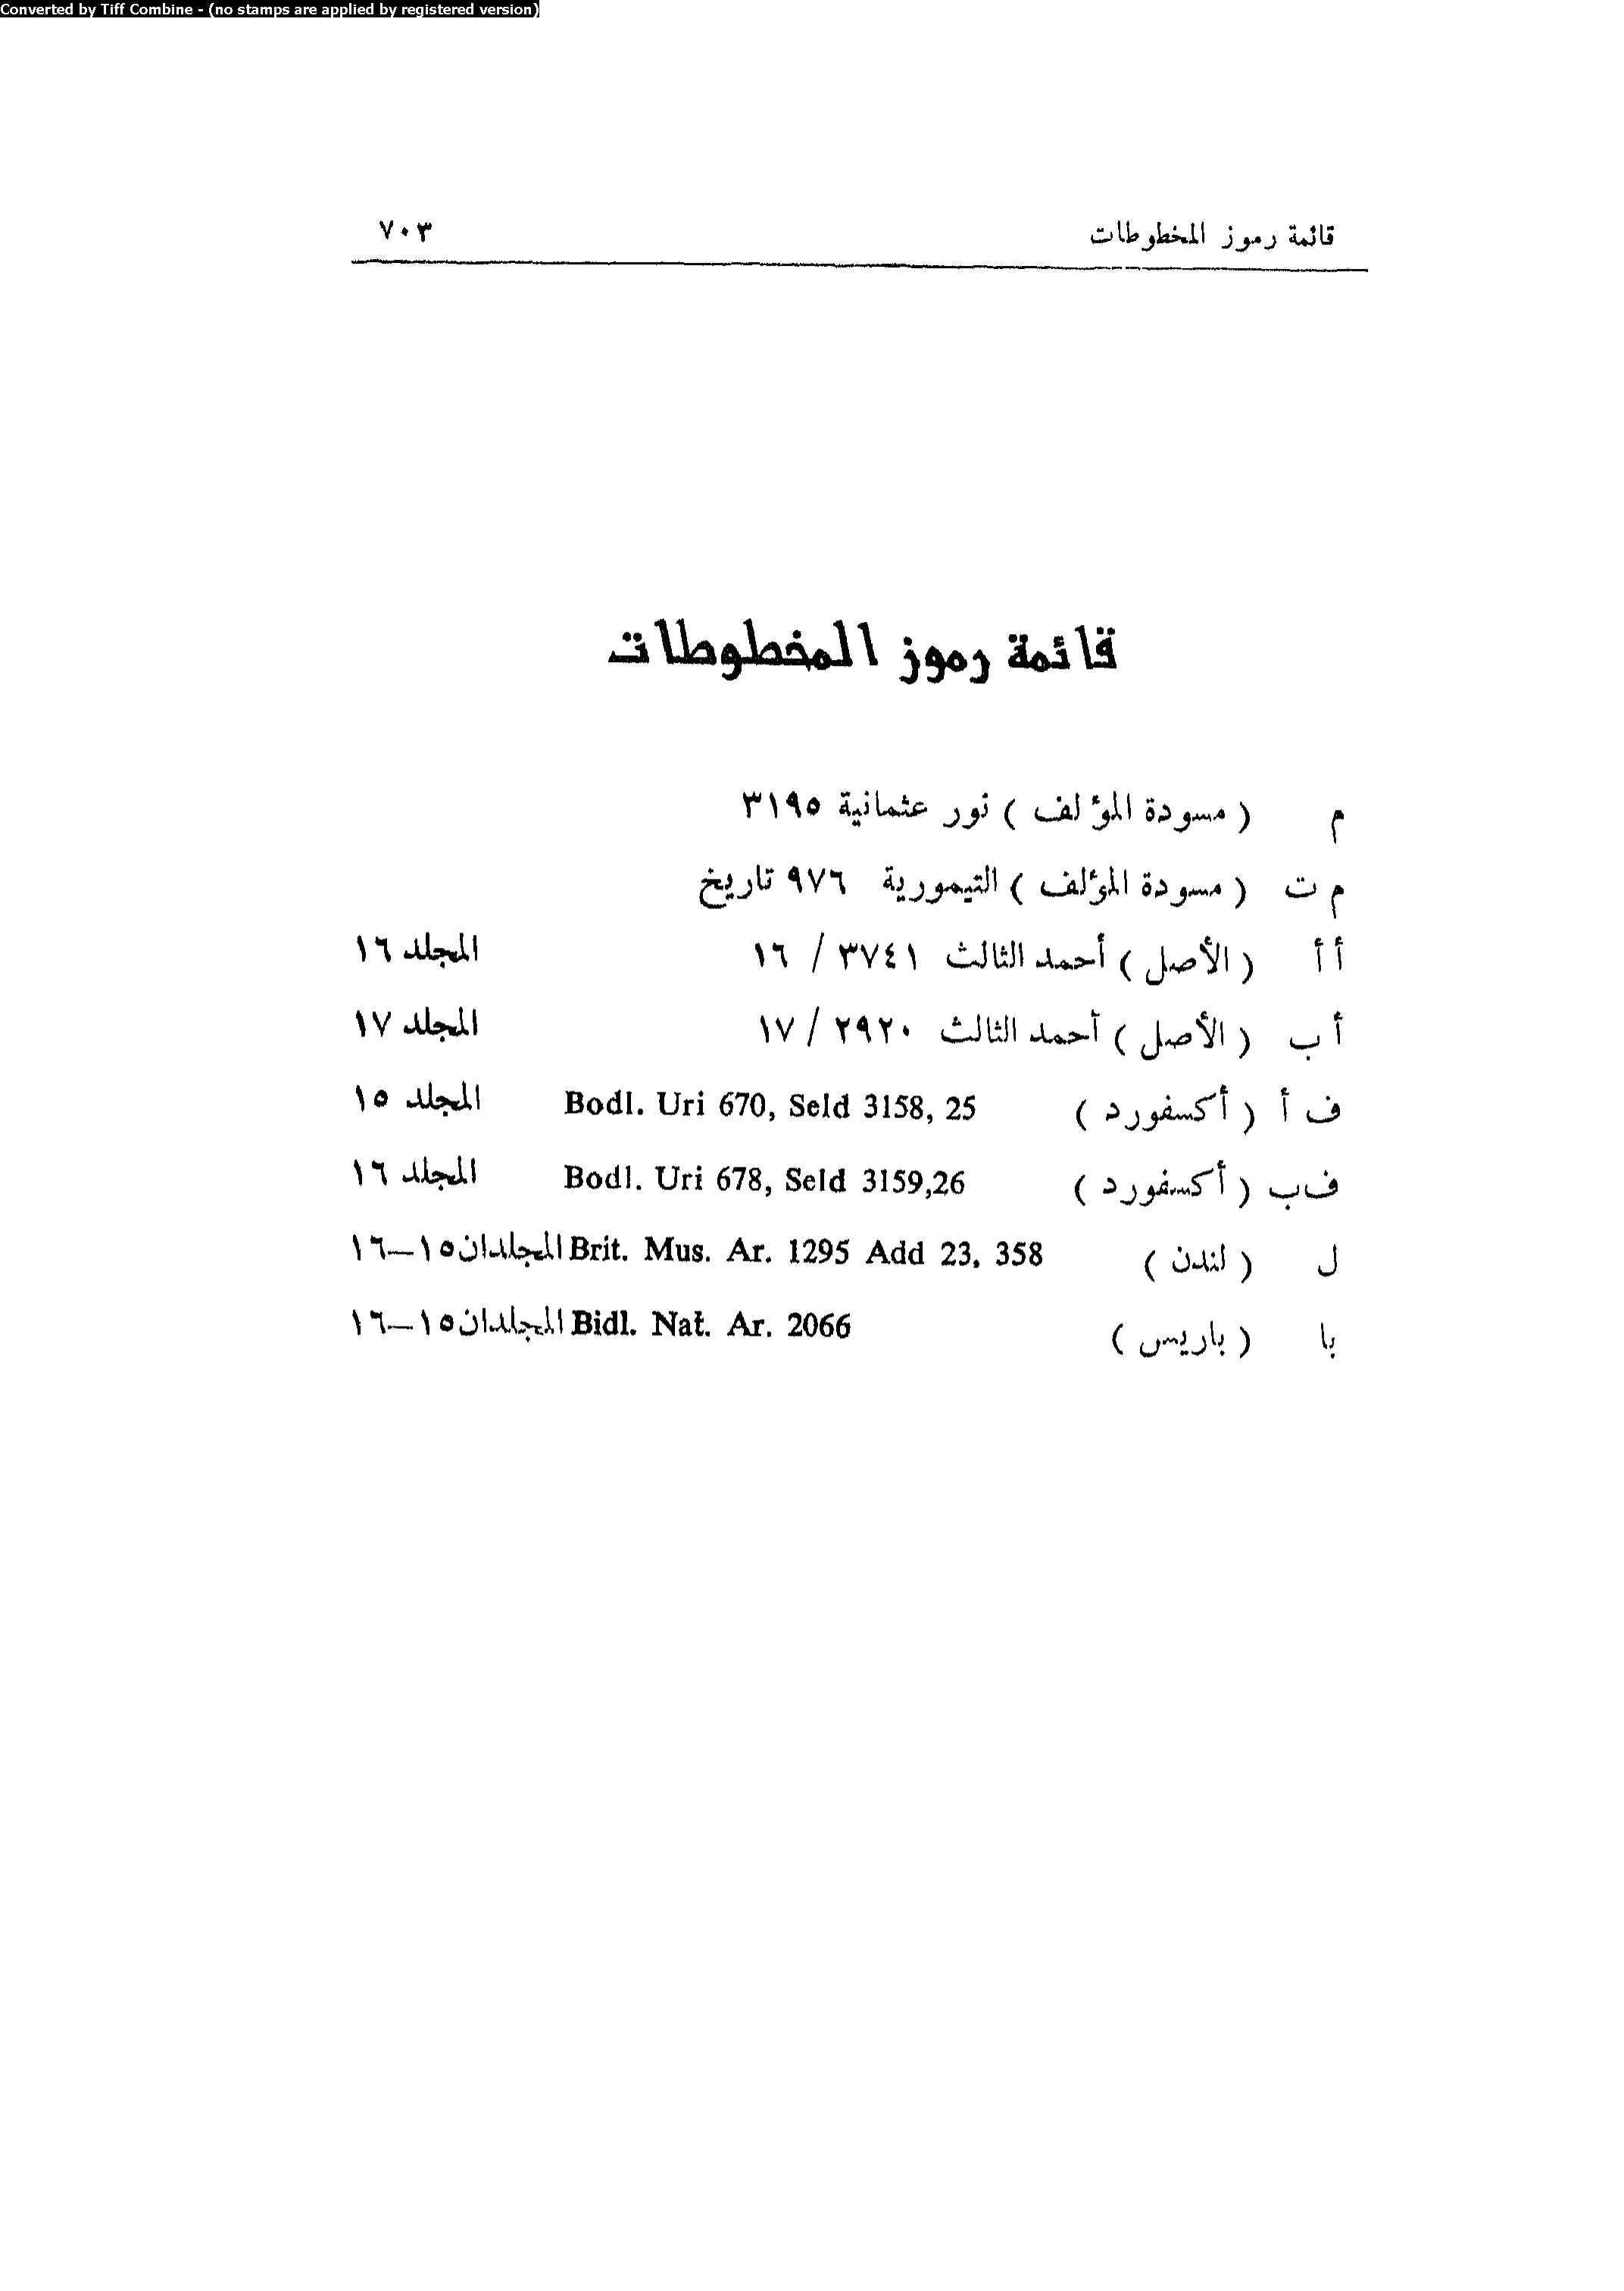 Converted by Tiff Combine - (no stamps are applied by registered version)
قائمة رموز المخطوطات ٧٠٣
قائمة رموز المخطوطات
م ( مسودة المؤلف ) نور عثمانية ٣١٩٥
م ت ( مسودة المؤلف ) التيمورية ٩٧٦ تاريخ
أ أ ( الأصل ) أحمد الثالث ٣٧٤١ / ١٦ المجلد ١٦
أ ب ( الأصل ) أحمد الثالث ٢٩٢٠ / ١٧ المجلد ١٧
ف أ ( أكسفورد ) Bodl. Uri 670, Seld 3158, 25 المجلد ١٥
ف ب ( أكسفورد ) Bodl. Uri 678, Seld 3159,26 المجلد ١٦
ل ( لندن ) Brit. Mus. Ar. 1295 Add 23, 358 المجلدان ١٥–١٦
با ( باريس ) Bidl. Nat. Ar. 2066 المجلدان ١٥–١٦